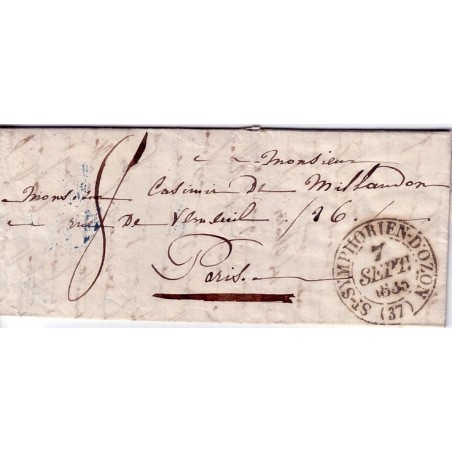 Monsieur
Monsieur Casimir de Millaudon
rue de Verneuil 16
Paris
ST-SYMPHORIEN-D'OZON (37)
7
SEPT.